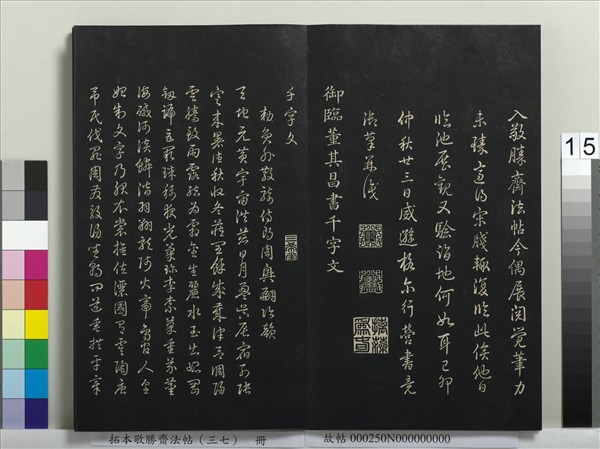 入敬勝齋法帖今偶展閱覺筆力
未臻適得宋牋輒復臨此俟他日
臨池展觀又驗詣地何如耳己卯
仲秋廿三日威遜格尔行營書竟
御臨董其昌書千字文
千字文
勅員外散騎侍郎周興嗣次韻
天地元黃宇宙洪荒日月盈昃辰宿列張
寒來暑往秋收冬藏閏餘成歲律呂調陽
雲騰致雨露結為霜金生麗水玉出崑岡
劍號巨闕珠稱夜光菓珍李柰菜重芥薑
海鹹河淡鱗潛羽翔龍師火帝鳥官人皇
始制文字乃服衣裳推位讓國有虞陶唐
弔民伐罪周發殷湯坐朝問道垂拱平章
15
拓本敬勝齋法帖(三七) 冊
故帖 000250N000000000